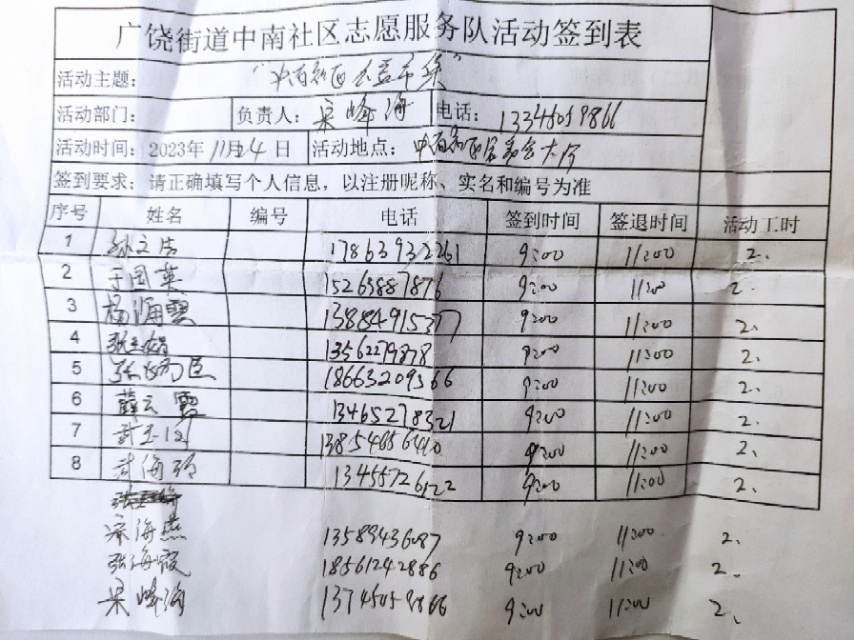 广饶街道中南社区志愿服务队活动签到表
活动主题：
活动部门： 负责人： 梁峰海 电话：
活动时间： 2023年 11月24日 活动地点： 中南社区居委会大厅
签到要求：请正确填写个人信息，以注册昵称、实名和编号为准
序号 姓名 编号 电话 签到时间 签退时间 活动工时
1 17863932261 9:00 11:00 2、
2 于国英 15263887876 9:00 11:00 2、
3 杨海霞 13884915377 9:00 11:00 2、
4 13562279878 9:00 11:00 2、
5 18663209366 9:00 11:00 2、
6 薛云霞 13465278321 9:00 11:00 2、
7 9:00 11:00 2、
8 13455726122 9:00 11:00 2、
梁海燕 13589436087 9:00 11:00 2、
张海霞 18561242886 9:00 11:00 2、
梁峰海 9:00 11:00 2、